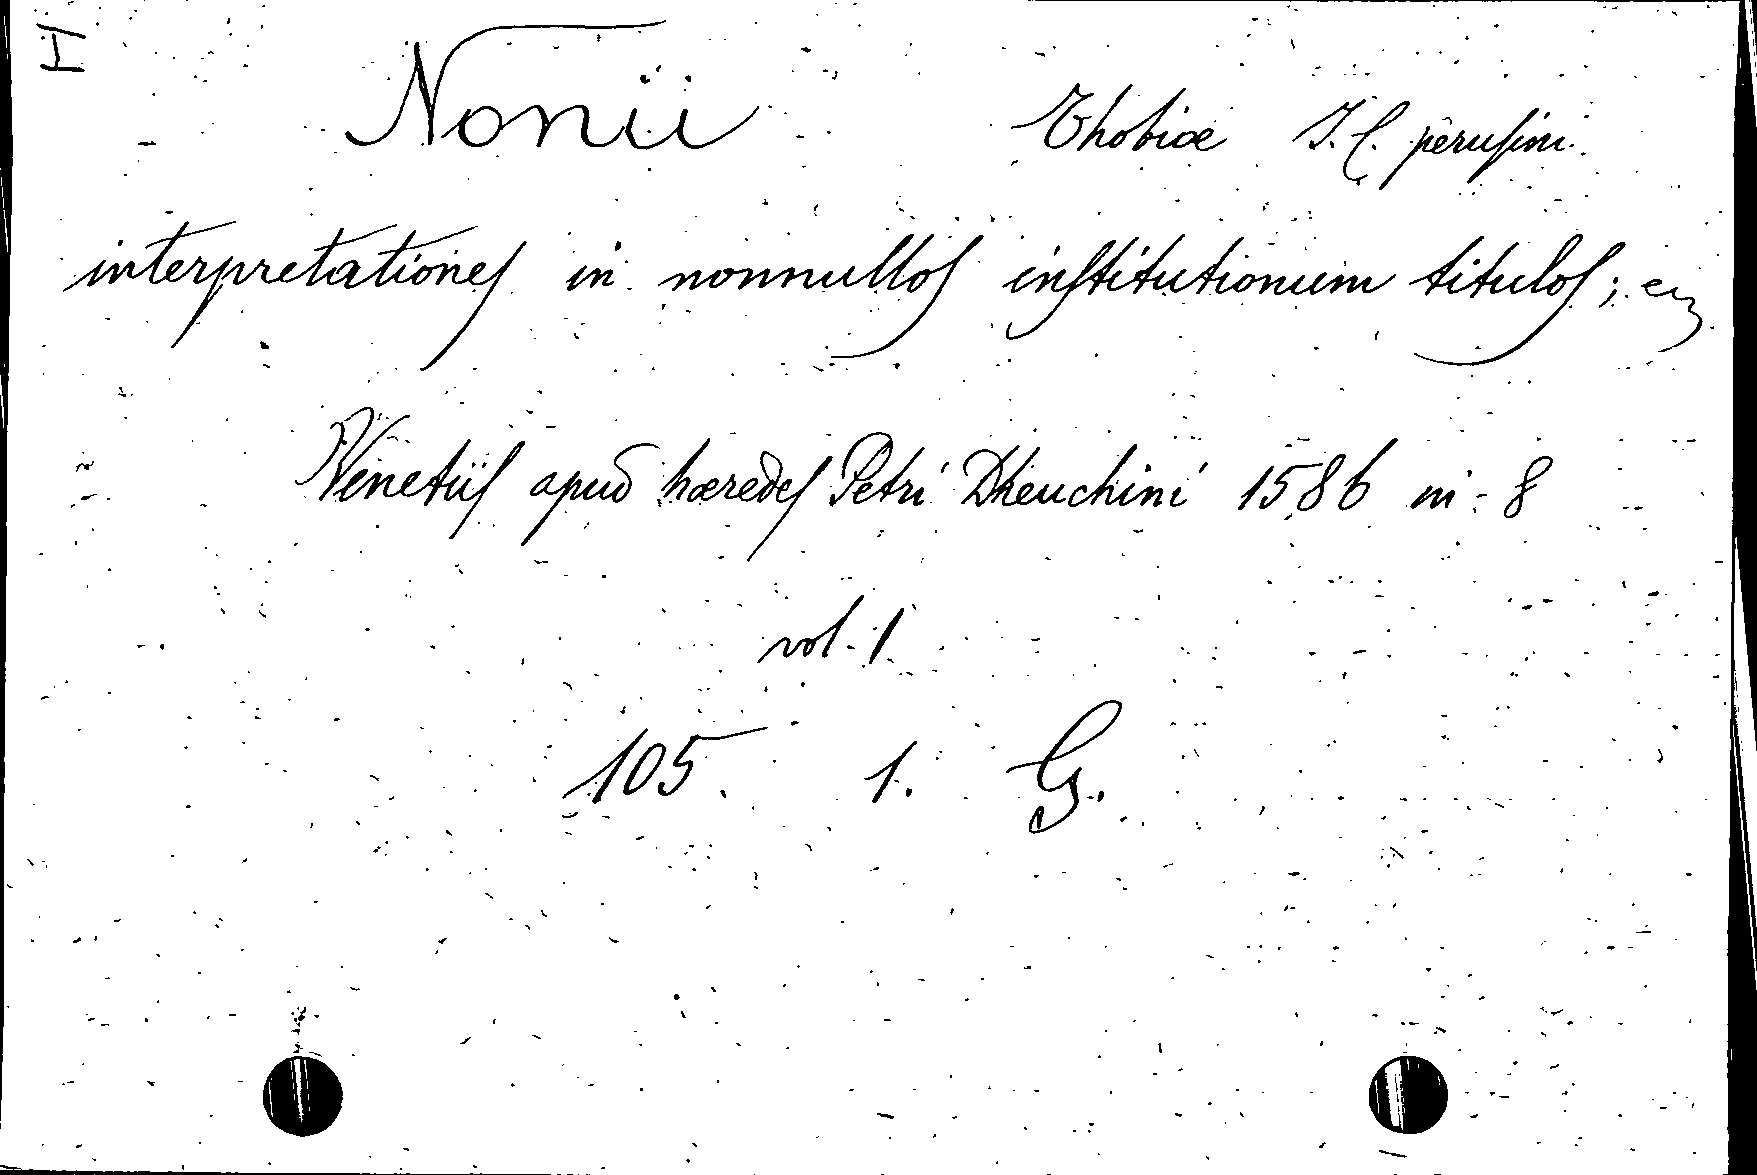 H
Nonii Thobiæ I. C. perusini
interpretationes in nonnullos institutionum titulos; &
Venetiis apud hæredes Petri Dheuchini 1586 in-8
vol. 1
105. 1. G.